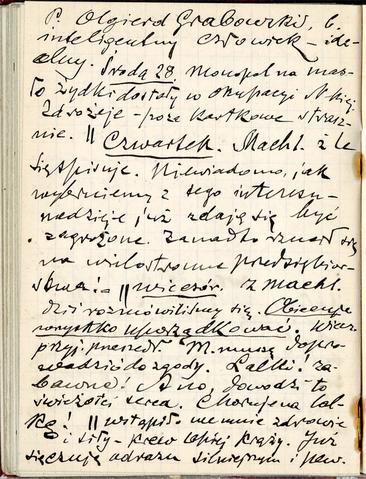 P. Olgierd Grabowski, b.
inteligentny człowiek – ide-
alny. Środa 28. Monopol na mas-
ło żydki dostały w okupacji N-kiej.
Zdrożeje – poza kartkowe strasz-
nie. || Czwartek. Machl. źle
się spisuje. Niewiadomo, jak
wybrniemy z tego interesu –
nadzieje już zdają się być
zagrożone. Zanadto rzucał się
na wielostronne przedsiębior-
stwa. – || wieczór. Z Machl.
dziś rozmówiliśmy się. Obiecuje
wszystko uporządkować. Wiecz.
przyj. poszedł M. muszą dopro-
wadzić do zgody. Lalki! za-
bawne! Ano, dowodzi to
świeżości serca. Choruje na lal-
kę! || wstąpiło we mnie zdrowie
i siły – krew lepiej krąży. Już
się czuję odrazu silniejszym i pew.